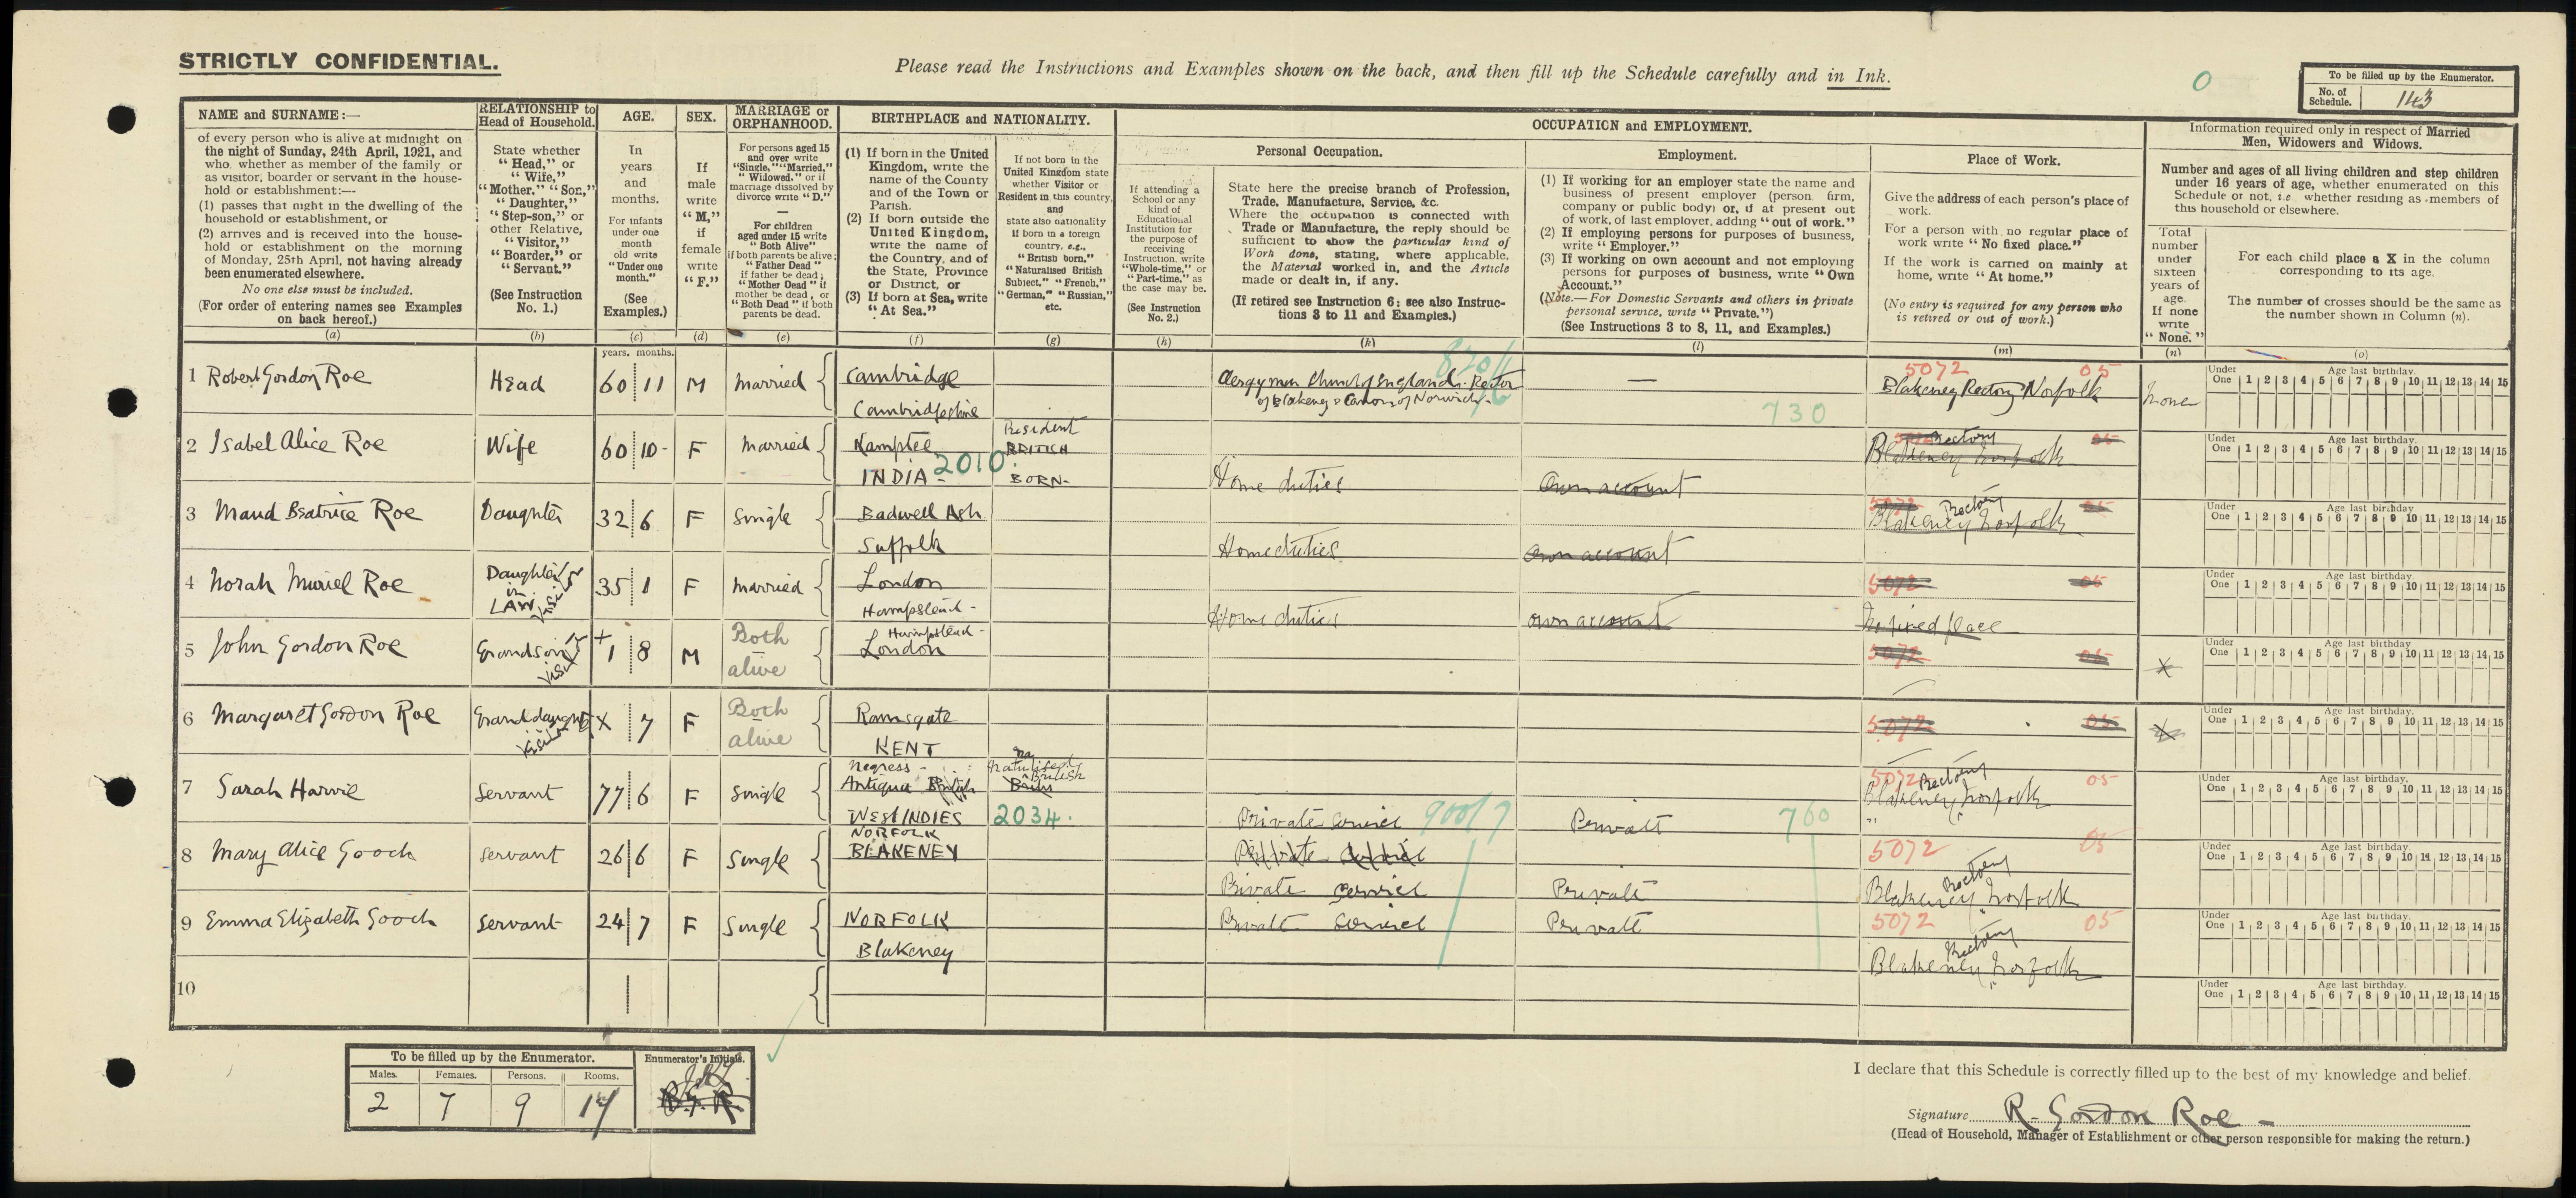 STRICTLY CONFIDENTIAL.
Please read the Instructions and Examples shown on the back, and then fill up the Schedule carefully and in Ink.
0
To be filled up by the Enumerator.
No. of Schedule. 143
NAME and SURNAME:—
of every person who is alive at midnight on
the night of Sunday, 24th April, 1921, and
who whether as member of the family or
as visitor, boarder or servant in the house-
hold or establishment:—
(1) passes that night in the dwelling of the
household or establishment, or
(2) arrives and is received into the house-
hold or establishment on the morning
of Monday, 25th April, not having already
been enumerated elsewhere.
No one else must be included.
(For order of entering names see Examples
on back hereof.)
(a)
RELATIONSHIP to
Head of Household.
State whether
"Head," or
"Wife,"
"Mother," "Son,"
"Daughter,"
"Step-son," or
other Relative,
"Visitor,"
"Boarder," or
"Servant."
(See Instruction
No. 1.)
(b)
AGE.
In
years
and
months.
For infants
under one
month
old write
"Under one
month."
(See
Examples.)
(c)
SEX.
If
male
write
"M,"
if
female
write
"F."
(d)
MARRIAGE or
ORPHANHOOD.
For persons aged 15
and over write
"Single," "Married,"
"Widowed," or if
marriage dissolved by
divorce write "D."
—
For children
aged under 15 write
"Both Alive"
if both parents be alive;
"Father Dead"
if father be dead;
"Mother Dead" if
mother be dead, or
"Both Dead" if both
parents be dead.
(e)
BIRTHPLACE and NATIONALITY.
(1) If born in the United
Kingdom, write the
name of the County
and of the Town or
Parish.
(2) If born outside the
United Kingdom,
write the name of
the Country, and of
the State, Province
or District, or
(3) If born at Sea, write
"At Sea."
(f)
If not born in the
United Kingdom state
whether Visitor or
Resident in this country,
and
state also nationality
if born in a foreign
country, e.g.,
"British born."
"Naturalised British
Subject," "French,"
"German," "Russian,"
etc.
(g)
OCCUPATION and EMPLOYMENT.
Personal Occupation.
If attending a
School or any
kind of
Educational
Institution for
the purpose of
receiving
Instruction, write
"Whole-time," or
"Part-time," as
the case may be.
(See Instruction
No. 2.)
(h)
State here the precise branch of Profession,
Trade, Manufacture, Service, &c.
Where the occupation is connected with
Trade or Manufacture, the reply should be
sufficient to show the particular kind of
Work done, stating, where applicable,
the Material worked in, and the Article
made or dealt in, if any.
(If retired see Instruction 6; see also Instruc-
tions 3 to 11 and Examples.)
(k)
Employment.
(1) If working for an employer state the name and
business of present employer (person, firm,
company or public body) or, if at present out
of work, of last employer, adding "out of work."
(2) If employing persons for purposes of business,
write "Employer."
(3) If working on own account and not employing
persons for purposes of business, write "Own
Account."
(Note.—For Domestic Servants and others in private
personal service, write "Private.")
(See Instructions 3 to 8, 11, and Examples.)
(l)
Place of Work.
Give the address of each person's place of
work.
For a person with no regular place of
work write "No fixed place."
If the work is carried on mainly at
home, write "At home."
(No entry is required for any person who
is retired or out of work.)
(m)
Information required only in respect of Married
Men, Widowers and Widows.
Number and ages of all living children and step children
under 16 years of age, whether enumerated on this
Schedule or not, i.e. whether residing as members of
this household or elsewhere.
Total
number
under
sixteen
years of
age.
If none
write
"None."
(n)
For each child place a X in the column
corresponding to its age.
The number of crosses should be the same as
the number shown in Column (n).
(o)
years. months.
Under One Age last birthday. 1 2 3 4 5 6 7 8 9 10 11 12 13 14 15
1 Robert Gordon Roe Head 60 11 M Married Cambridge Cambridgeshire
Clergyman Church of England. Rector of Blakeney & Canon of Norwich — 820/1 730
5072 05 Blakeney Rectory Norfolk None
Under One Age last birthday. 1 2 3 4 5 6 7 8 9 10 11 12 13 14 15
2 Isabel Alice Roe Wife 60 10 F Married Kamptee INDIA 2010 Resident BRITISH BORN
Home duties Own account
5072 05 Blakeney Rectory Norfolk
Under One Age last birthday. 1 2 3 4 5 6 7 8 9 10 11 12 13 14 15
3 Maud Beatrice Roe Daughter 32 6 F Single Badwell Ash Suffolk
Home duties Own account
5072 05 Blakeney Rectory Norfolk
Under One Age last birthday. 1 2 3 4 5 6 7 8 9 10 11 12 13 14 15
4 Norah Muriel Roe Daughter in LAW Visitor 35 1 F Married London Hampstead
Home duties own account
5072 05 No fixed place
Under One Age last birthday. 1 2 3 4 5 6 7 8 9 10 11 12 13 14 15
5 John Gordon Roe Grandson Visitor + 1 8 M Both alive Hampstead London
5072 05 X
Under One Age last birthday. 1 2 3 4 5 6 7 8 9 10 11 12 13 14 15
6 Margaret Gordon Roe Granddaughter Visitor X 7 F Both alive Ramsgate KENT
5072 05 X
Under One Age last birthday. 1 2 3 4 5 6 7 8 9 10 11 12 13 14 15
7 Sarah Harvie Servant 77 6 F Single Negress Antigua British WEST INDIES British 2034
Private Service 900/7 Private 760
5072 05 Blakeney Rectory Norfolk
Under One Age last birthday. 1 2 3 4 5 6 7 8 9 10 11 12 13 14 15
8 Mary Alice Gooch Servant 26 6 F Single NORFOLK BLAKENEY
Private Service
Private Service Private
5072 05 Blakeney Rectory Norfolk
Under One Age last birthday. 1 2 3 4 5 6 7 8 9 10 11 12 13 14 15
9 Emma Elizabeth Gooch Servant 24 7 F Single NORFOLK Blakeney
Private Service Private
5072 05 Blakeney Rectory Norfolk
Under One Age last birthday. 1 2 3 4 5 6 7 8 9 10 11 12 13 14 15
10
Under One Age last birthday. 1 2 3 4 5 6 7 8 9 10 11 12 13 14 15
To be filled up by the Enumerator.
Males. Females. Persons. Rooms.
2 7 9 14
Enumerator's Initials.
I declare that this Schedule is correctly filled up to the best of my knowledge and belief.
Signature R. Gordon Roe
(Head of Household, Manager of Establishment or other person responsible for making the return.)